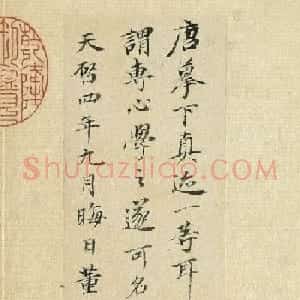 唐摹下真迹一等耳
謂專心學之遂可名
天啓四年九月晦日董
Shufaziliao.com